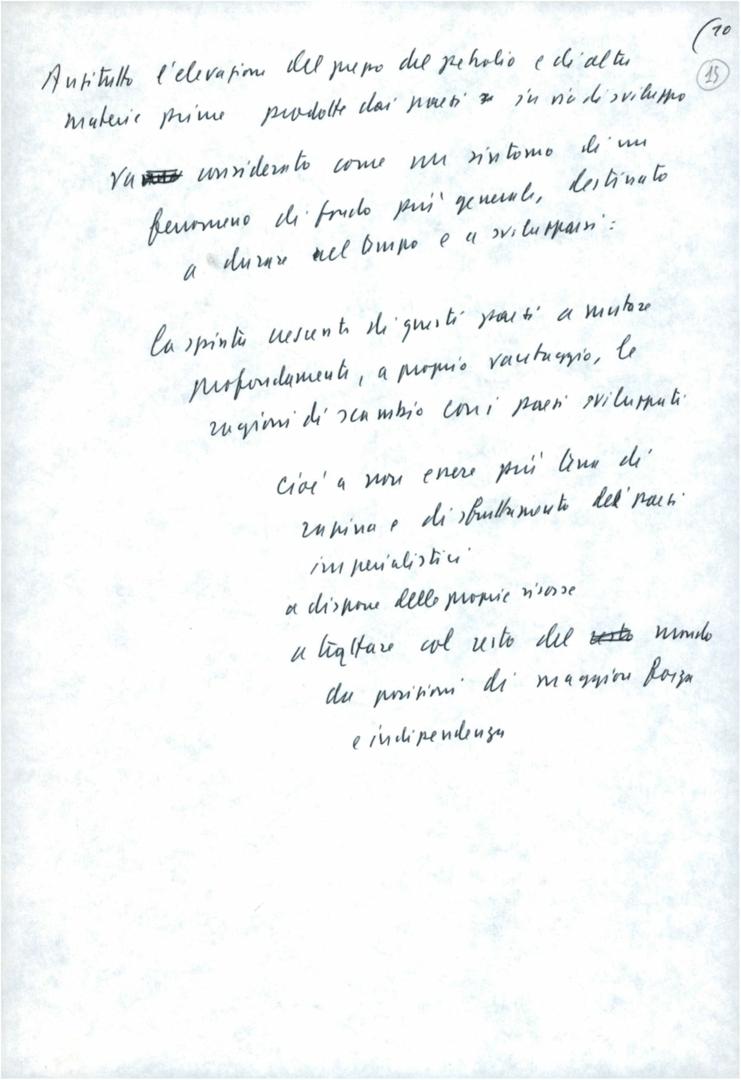 (10
15
Anzitutto l'elevazione del prezzo del petrolio e di altre
materie prime prodotte dai paesi in via di sviluppo
va considerato come un sintomo di un
fenomeno di fondo più generale, destinato
a durare nel tempo e a svilupparsi:
la spinta crescente di questi paesi a mutare
profondamente, a proprio vantaggio, le
ragioni di scambio con i paesi sviluppati
cioè a non essere più terra di
rapina e di sfruttamento dei paesi
imperialistici
a disporre delle proprie risorse
a trattare col resto del mondo
da posizioni di maggiore forza
e indipendenza